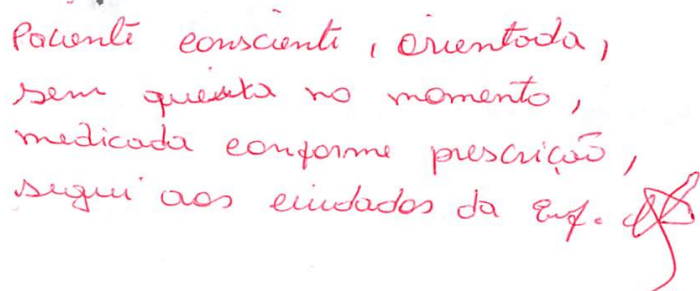 Paciente consciente, orientada,
sem queixa no momento,
medicada conforme prescrição,
segui aos cuidados da Enf.